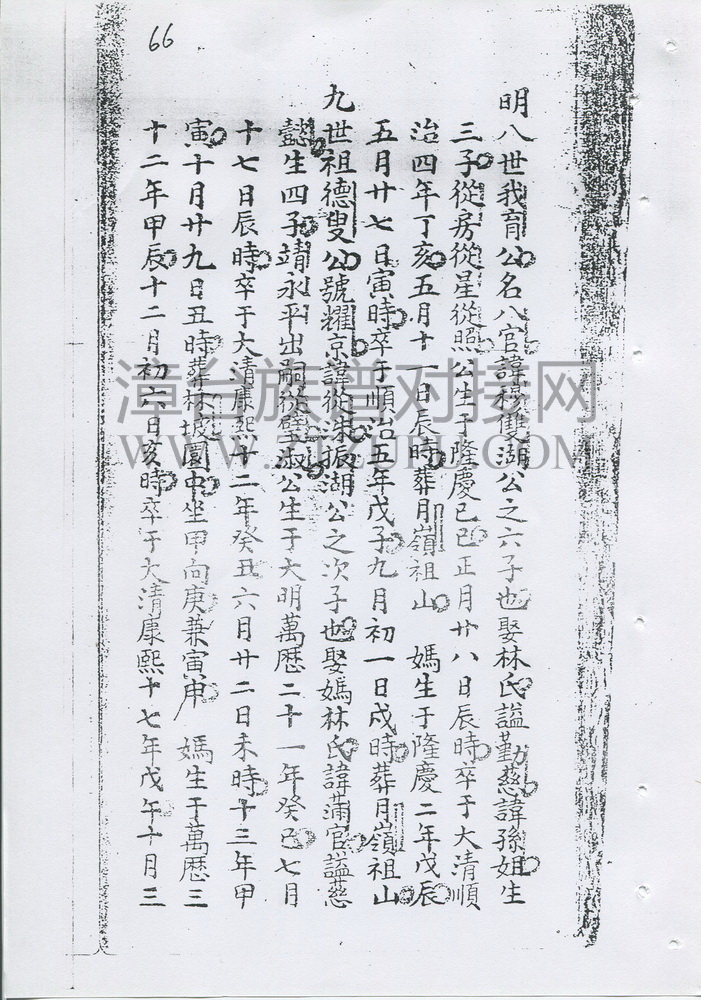 66
明八世我育公名八官諱稜雙湖公之六子也娶林氏謚勤慈諱孫姐生
三子從房從星從照公生于隆慶己巳正月廿八日辰時卒于大清順
治四年丁亥五月十一日辰時葬月嶺祖山 媽生于隆慶二年戊辰
五月廿七日寅時卒于順治五年戊子九月初一日戌時葬月嶺祖山
九世祖德叟公號耀京諱從洙振湖公之次子也娶媽林氏諱蒲官謚慈
懿生四子靖永平出嗣從璧淑公生于大明萬歷二十一年癸巳七月
十七日辰時卒于大清康熙十二年癸丑六月廿二日未時十三年甲
寅十月廿九日丑時葬林坡園中坐甲向庚兼寅申 媽生于萬歷三
十二年甲辰十二月初六日亥時卒于大清康熙十七年戊午十月三
漳台族谱对接网
WWW.ZTZUPU.COM